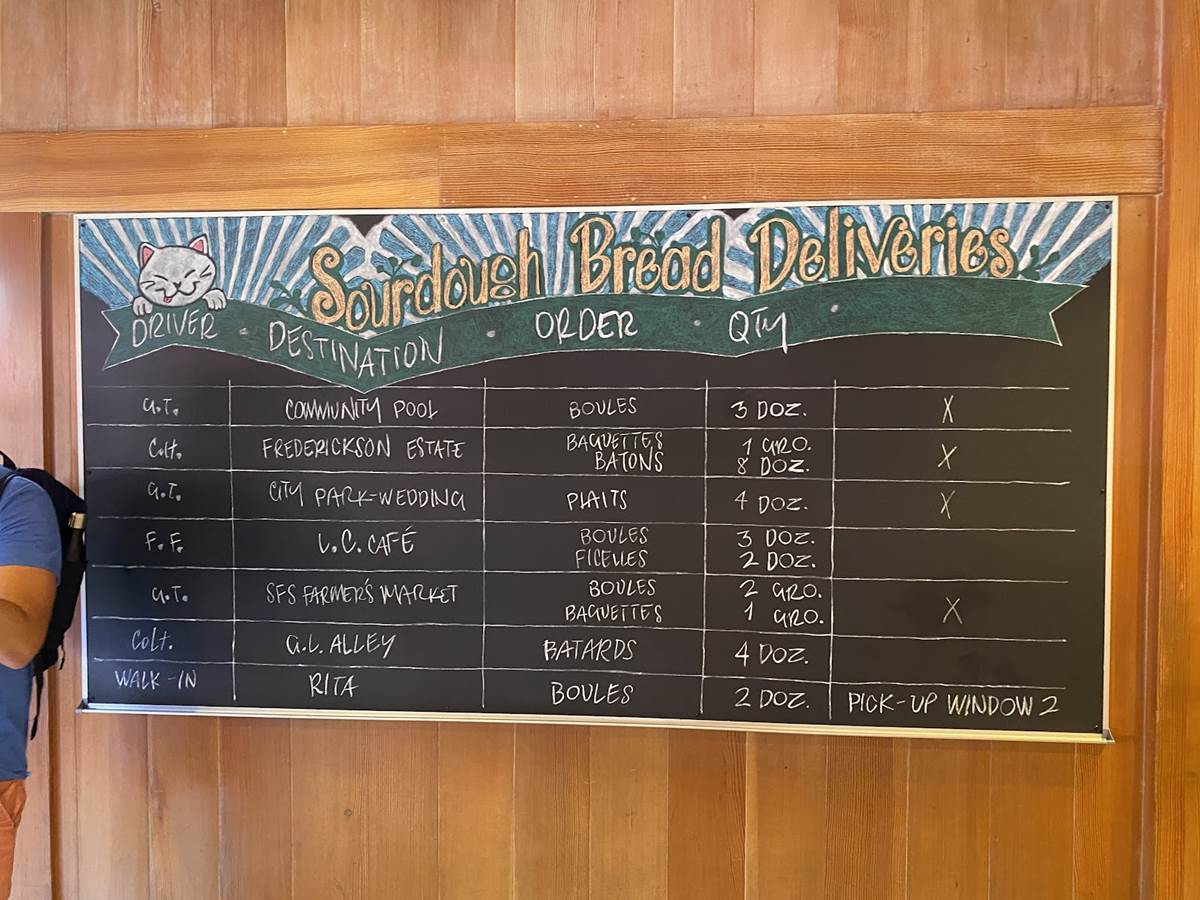 Sourdough Bread Deliveries
DRIVER • DESTINATION • ORDER • QTY •
G.T. COMMUNITY POOL BOULES 3 DOZ. X
Colt. FREDERICKSON ESTATE BAGUETTES 1 GRO. X
BATONS 8 DOZ.
G.T. CITY PARK-WEDDING PLAITS 4 DOZ. X
F.F. V.C. CAFÉ BOULES 3 DOZ.
FICELLES 2 DOZ.
G.T. SFS FARMER'S MARKET BOULES 2 GRO. X
BAGUETTES 1 GRO.
Colt. G.L. ALLEY BATARDS 4 DOZ.
WALK-IN RITA BOULES 2 DOZ. PICK-UP WINDOW 2